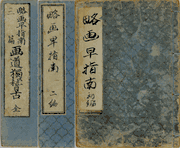 略画早指南 初編
略画早指南 二編
略画早指南
三篇
画道獨稽古 全